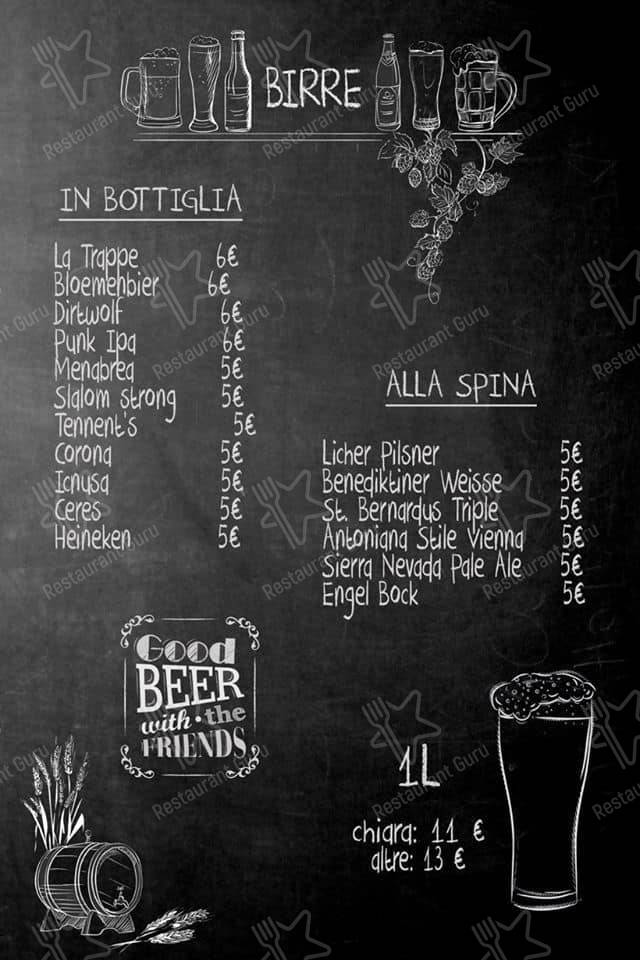 BIRRE
IN BOTTIGLIA
La Trappe 6€
Bloemenbier 6€
Dirtwolf 6€
Punk Ipa 6€
Menabrea 5€
Slalom strong 5€
Tennent's 5€
Corona 5€
Icnusa 5€
Ceres 5€
Heineken 5€
ALLA SPINA
Licher Pilsner 5€
Benediktiner Weisse 5€
St. Bernardus Triple 5€
Antoniana Stile Vienna 5€
Sierra Nevada Pale Ale 5€
Engel Bock 5€
Good
BEER
with • the
FRIENDS
1L
chiara: 11 €
altre: 13 €
Restaurant Guru